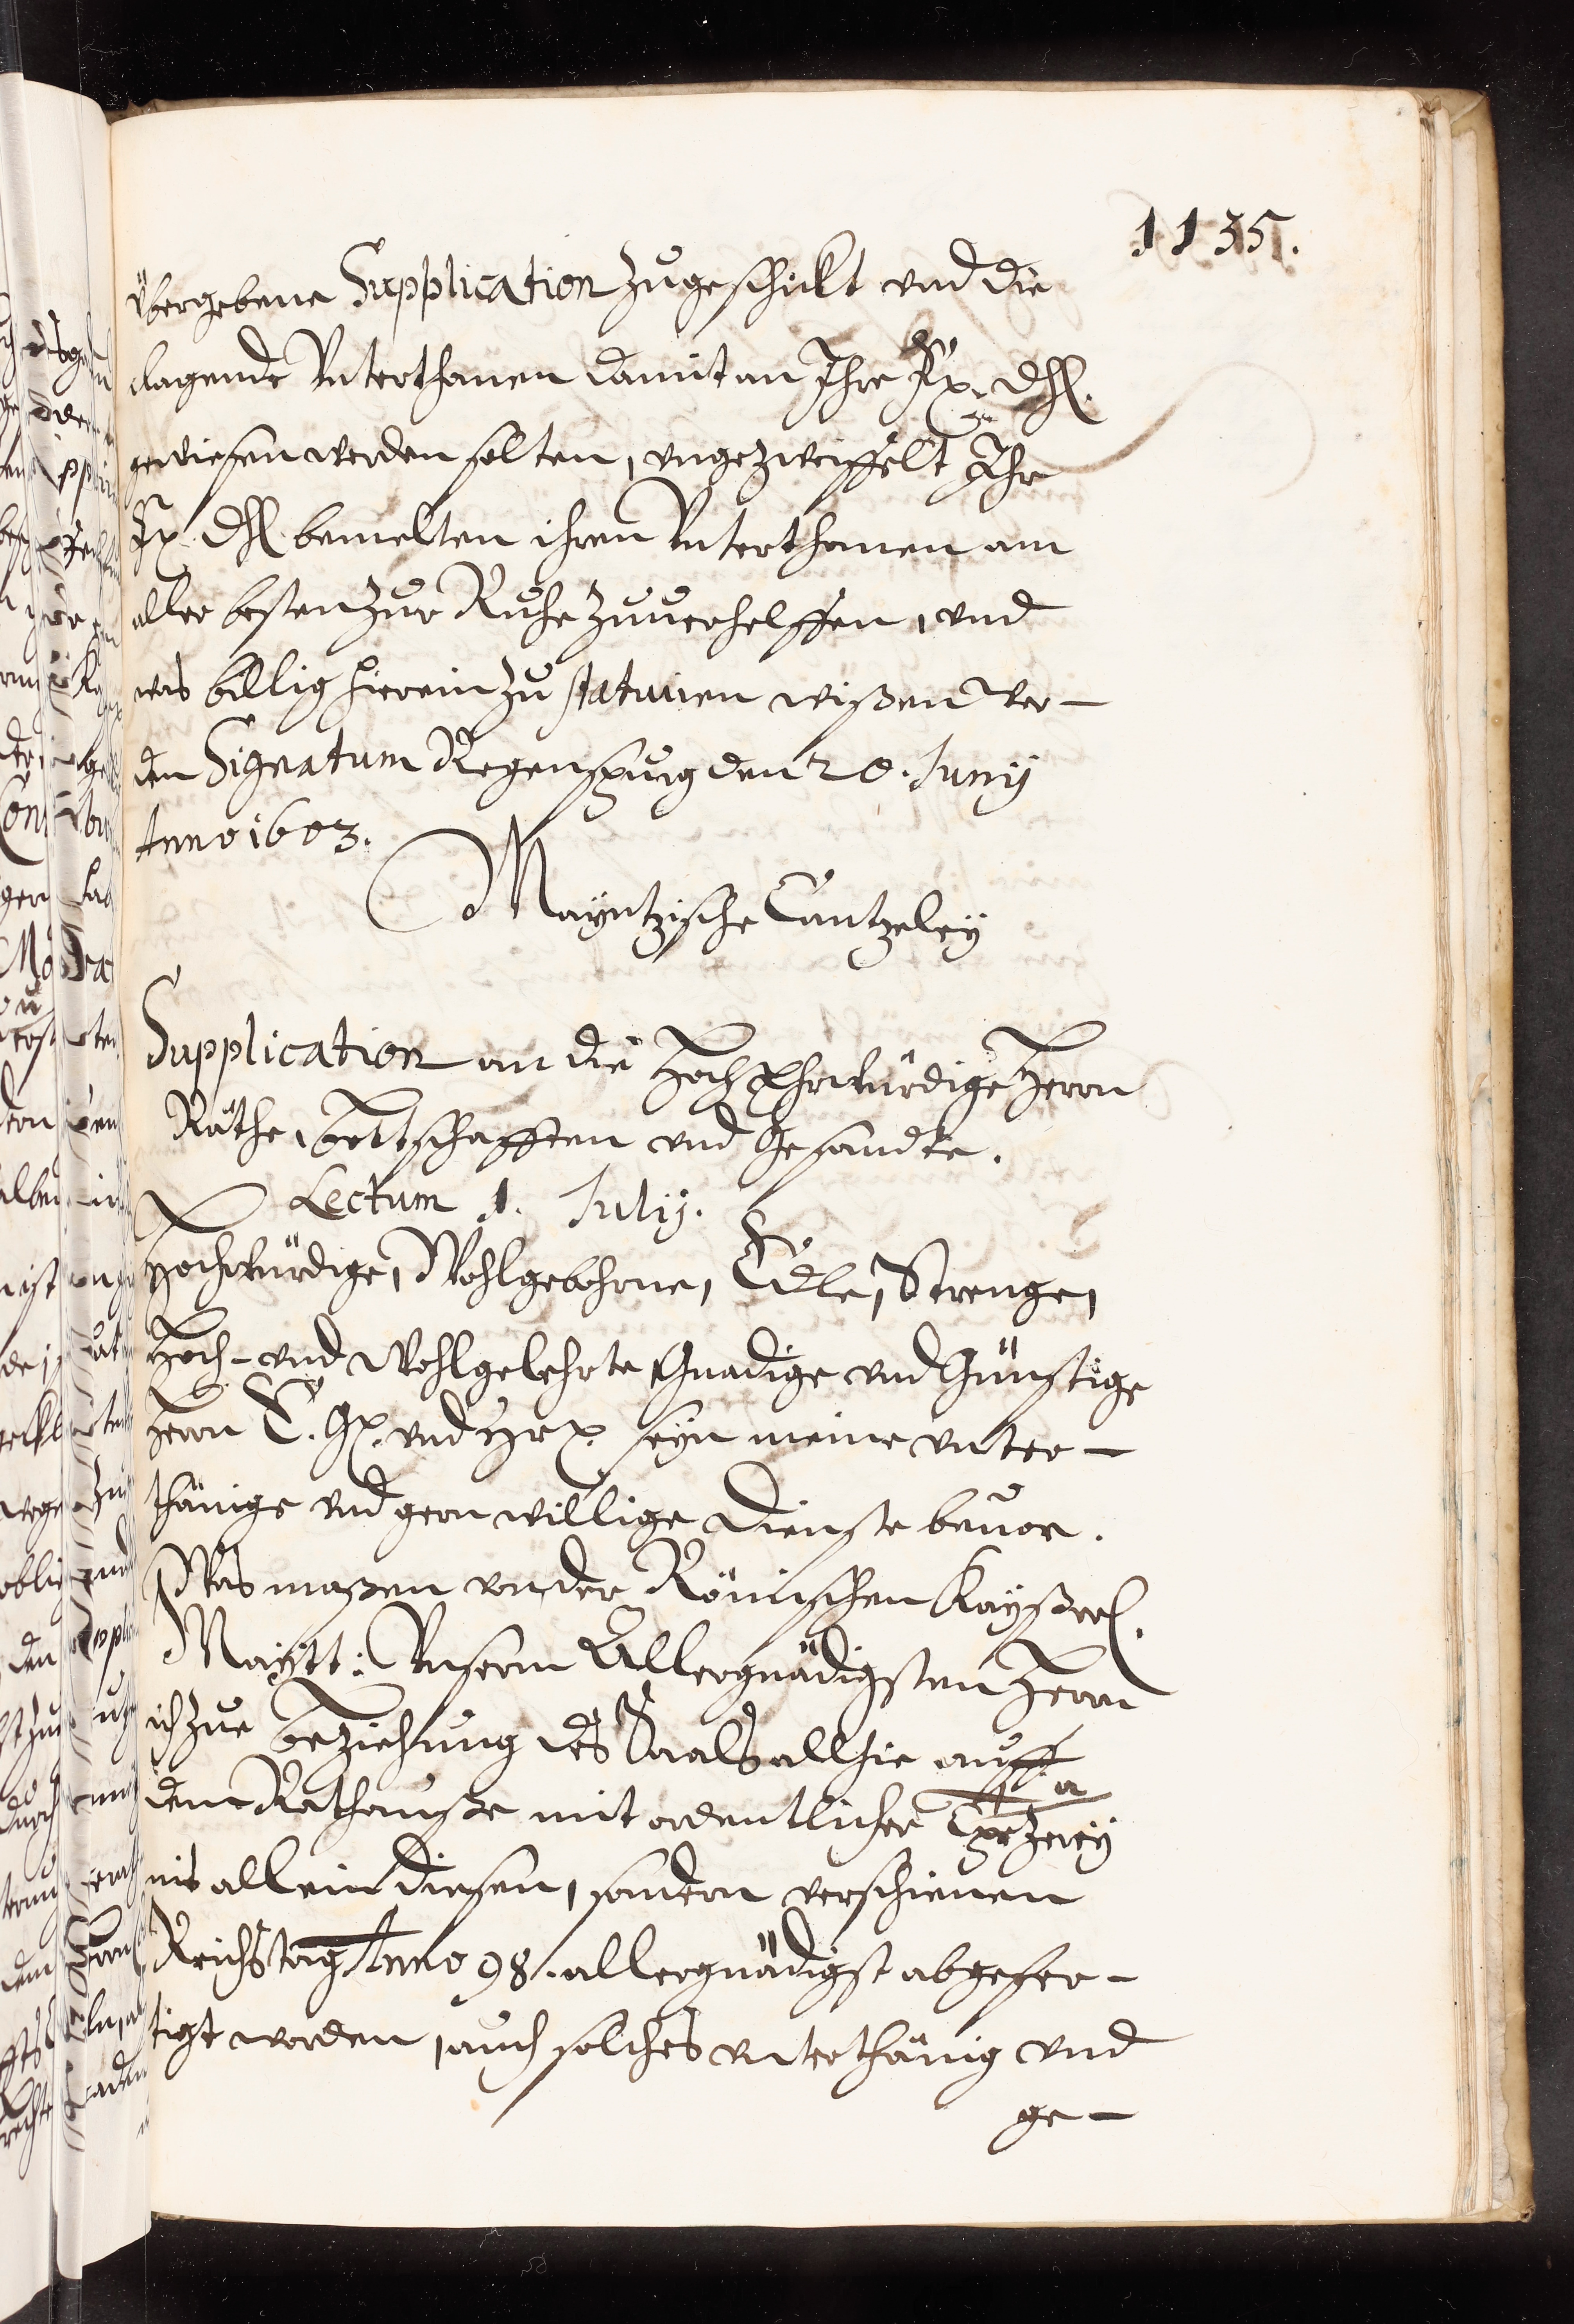 1135.
übergebene Supplication zugeschickt vnd die
clagende Vnterthanen damit an Ihre Fr. Dhl.
gewiesen werden solten, vngezweiffelt Ihr
Fr. Dhl. bemelten ihren Vnterthanen am
aller besten zur Ruhe zuuerhelffen, vnd
was billig hierein zu statuiren wißen wer-
den Signatum Regenspurg den 20. Junij
Anno 1603.
Mayntzische Cantzeley
Supplication an die Hoch Ehrwürdige Herrn
Räthe, Bottschafften vnd Gesandte.
Lectum 1. Julij.
Hochwürdige, Wohlgebohrne, Edle, Strenge,
Hoch- vnd Wohlgelehrte Gnädige vnd Günstige
Herrn E. Gn. vnd seyn meine vnter-
thänige vnd gern willige Dienste beuor.
Was maßen von der Römischen Kayßerl.
Maÿtt: Vnserm Allergnädigsten Herrn
ich zue beziehung des Saals allhie auff
dem Rathauße mit ordentlicher
nit allein diesen, sondern verschienen
Reichstag Anno 98. allergnädigst abgefer-
tigt worden, auch solches vnterthänig vnd
ge-